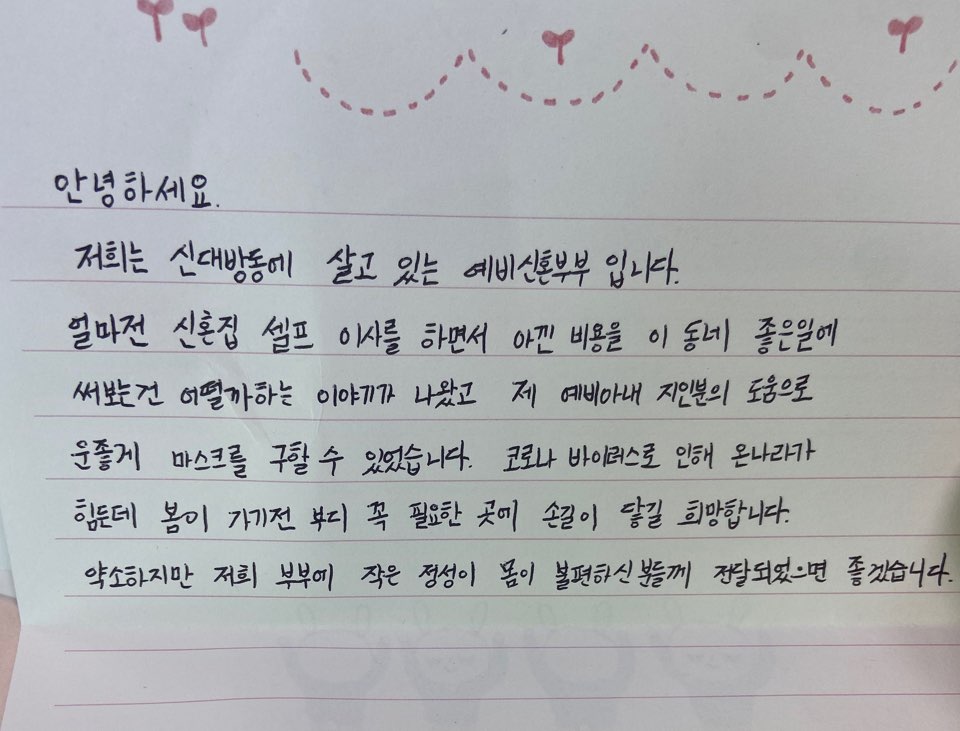 안녕하세요.
저희는 신대방동에 살고 있는 예비신혼부부 입니다.
얼마전 신혼집 셀프 이사를 하면서 아낀 비용을 이 동네 좋은일에
써보는건 어떨까하는 이야기가 나왔고 제 예비아내 지인분의 도움으로
운좋게 마스크를 구할 수 있었습니다. 코로나 바이러스로 인해 온나라가
힘든데 봄이 가기전 부디 꼭 필요한 곳에 손길이 닿길 희망합니다.
약소하지만 저희 부부에 작은 정성이 몸이 불편하신분들께 전달되었으면 좋겠습니다.